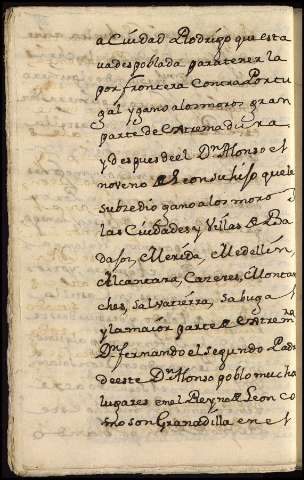 a Ciudad Rodrigo que esta
va despoblada para tener la
por frontera Contra Portu
gal y gano a los moros gran
parte de extremadura
y despues de el Dn Alonso el
noveno Rl con su hijo que le
subzedio gano a los moros
las Ciudades y Villas de Ba
dajoz, Merida, Medellin,
Alcantara, Cazeres, Montan
ches, Salvatierra, Sabuga l
y la maior parte de extrem
Dn fernando el segundo Padre
de este Dn Alonso poblo mucha
lugares en el Reyno de Leon Co
mo son Granadilla en el